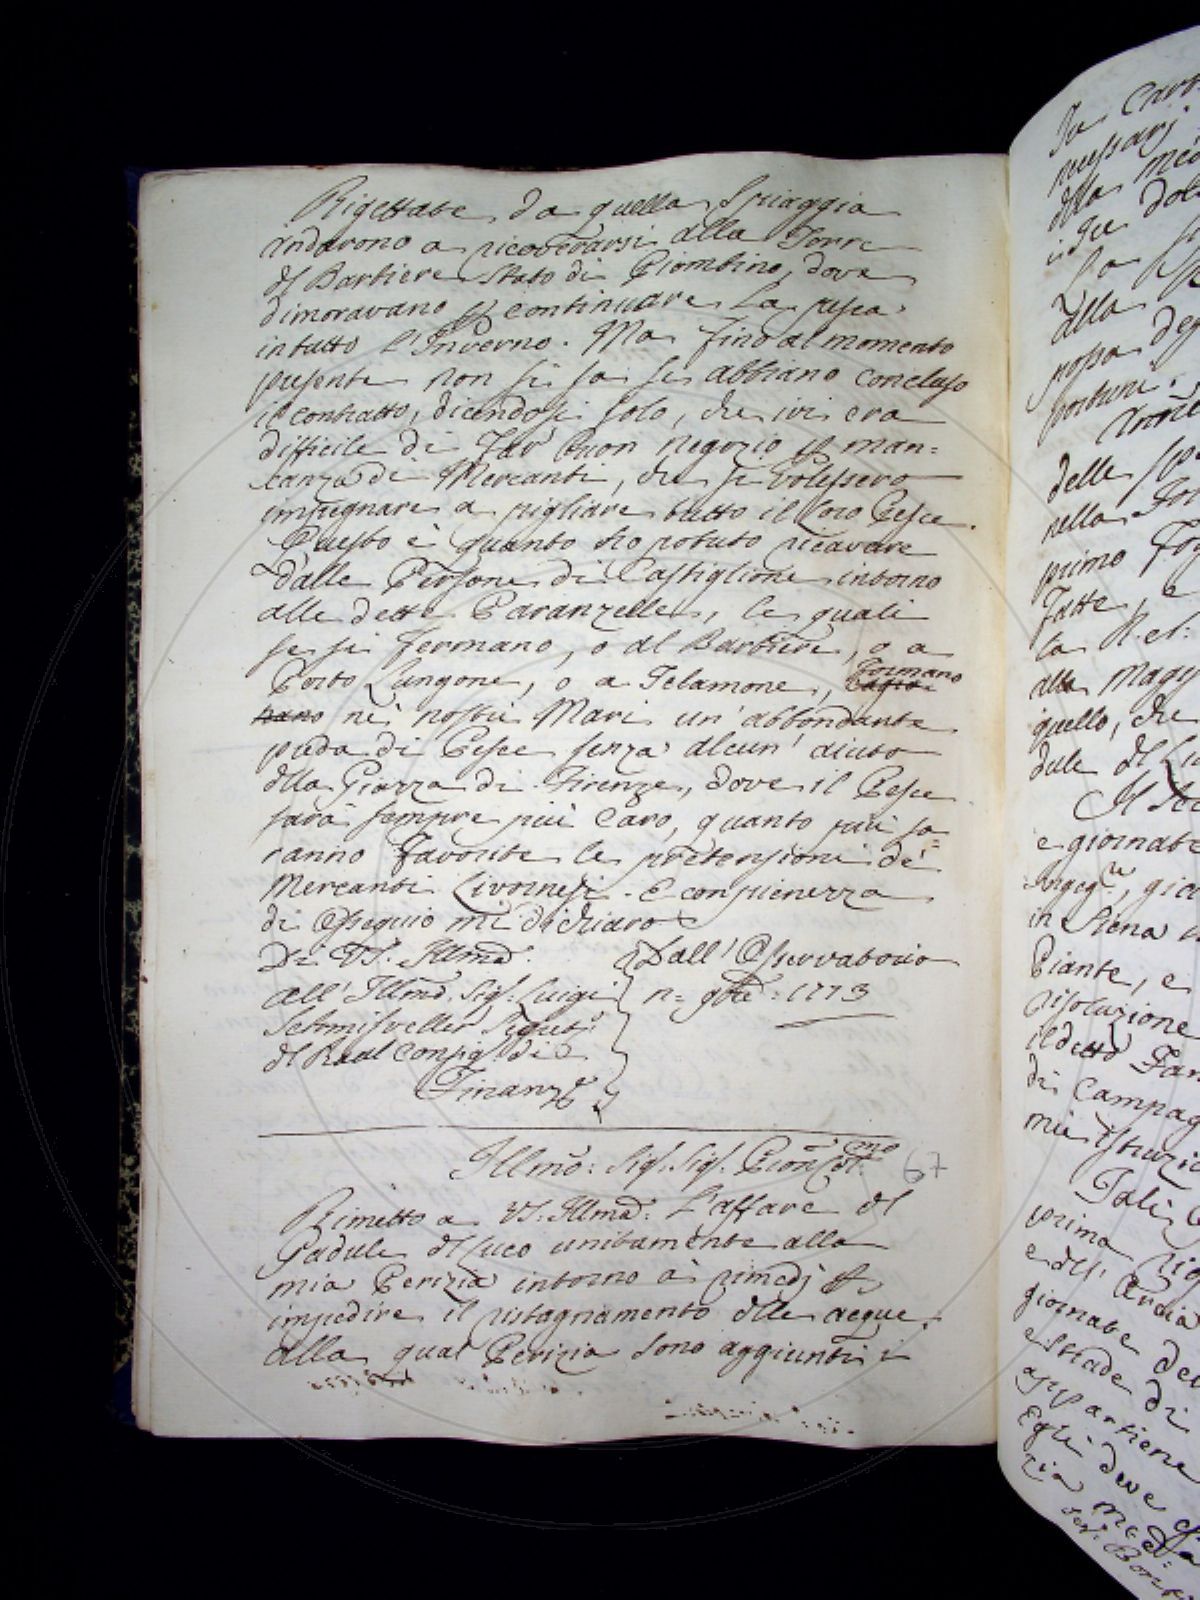 Rigettate da quella Spiaggia
andarono a ricoverarsi alla Torre
del Barbiere Stato di Piombino, dove
dimoravano p continuare la pesca
in tutto l'Inverno. Ma fino al momento
presente non si sa se abbiano concluso
il contratto, dicendosi solo, che ivi era
difficile di far buon negozio p man=
canza di Mercanti, che si volessero
impegnare a pigliare tutto il loro Pesce.
Questo è quanto ho potuto ricavare
dalle Persone di Castiglione intorno
alle dette Paranzelle, le quali
se si fermano, o al Barbiere, o a
Porto Lungone, o a Telamone, formano
ne' nostri Mari un' abbondante
preda di Pesce senza alcun' aiuto
della Piazza di Firenze, dove il Pesce
sarà sempre più caro, quanto più sa=
ranno favorite le pretensioni de'
Mercanti Livornesi. E con pienezza
di Ossequio mi dichiaro
Di VS. Illma.
all' Illmo. Sig. Luigi
Schmisveller Segret.
del Real Consig. di
Finanze
Dall' Osservatorio
n= 9bre 1773
Illmo: Sig. Sig. Pron Colmo
67
Rimetto a VS. Illma: l'affare del
Padule del Luco unitamente alla
mia Perizia intorno ai rimedj p
impedire il ristagnamento delle acque.
alla qual Perizia sono aggiunti i
della
possa
delle
nella
primo
fatte, e
la
alla
quello, che
dule
e giornate
in Siena
Piante, e
risoluzione
il detto
di Campag
e dell'
giornate
e strade di
appartiene
Egli deve